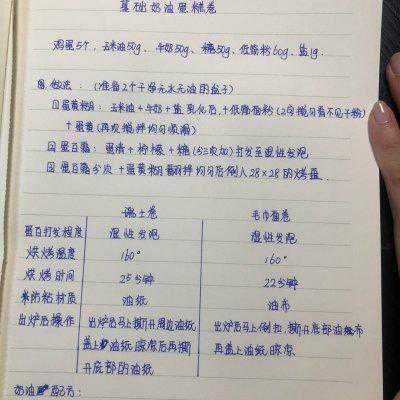 基础奶油蛋糕卷
鸡蛋5个，玉米油50g、牛奶50g、糖50g、低筋粉60g、盐1g.
做法：（准备2个干净无水无油的盆子）
蛋黄糊：玉米油+牛奶+盐乳化后+低筋面粉（Z字搅匀看不见干粉）
+蛋黄（再次搅拌均匀顺滑）
蛋白霜：蛋清+柠檬+糖（分三次加）打发至湿性发泡
蛋白霜分次+蛋黄糊翻拌均匀后倒入28×28的烤盘.
瑞士卷 毛巾面卷
蛋白打发程度 湿性发泡 湿性发泡
烘烤温度 160° 160°
烘烤时间 25分钟 22分钟
防粘材质 油纸 油布
出炉后操作 出炉后马上撕开周边油纸 出炉后马上倒扣，撕开底部油布
盖上油纸晾凉后再撕 再盖上油纸晾凉
开底部的油纸
奶油配方：